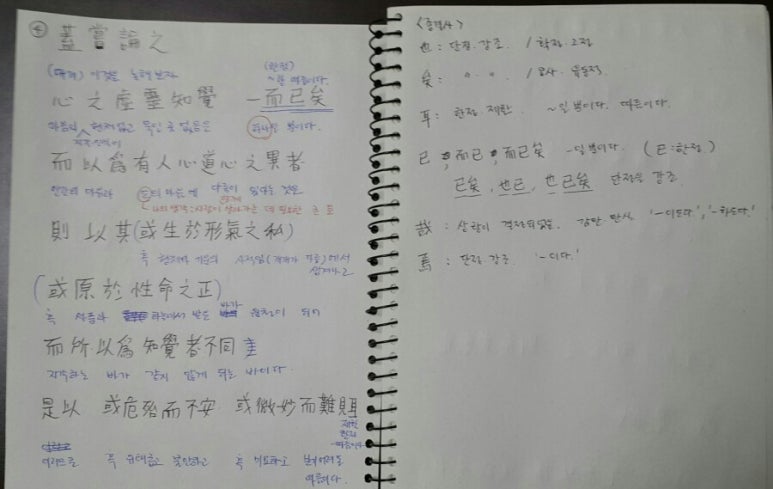 ④ 蓋嘗論之
이것을 논해 보자
(한정)
~할 따름이다.
心之虛靈知覺 一而已矣
하나일 뿐이다.
而以爲有人心道心之異者
인간의 마음과 도의 마음에 다름이 있다는 것은
則 以其(或生於形氣之私)
혹 형기의 사적임 에서 생겨나고
(或原於性命之正)
혹 바른 원천이 되어
而所以爲知覺者不同
지각하는 바가 같지 않게 되는 바이다.
是以 或危殆而不安 或微妙而難見耳
제한
한정
따름이다
이러므로 혹 위태롭고 불안하고 혹 미묘하고 보기 어려울
따름이다.
<종결사>
也 : 단정. 강조. / 확정. 고정
矣 : 〃 〃 /
耳 : 한정. 제한. ~일 뿐이다. 따름이다.
已, 而已, 而已矣 ~일 뿐이다. (已:한정)
已矣, 也已, 也已矣 단정을 강조.
哉 : 감탄. 반어. '~이도다', '~하도다.'
焉 : 단정 강조 '~이다.'